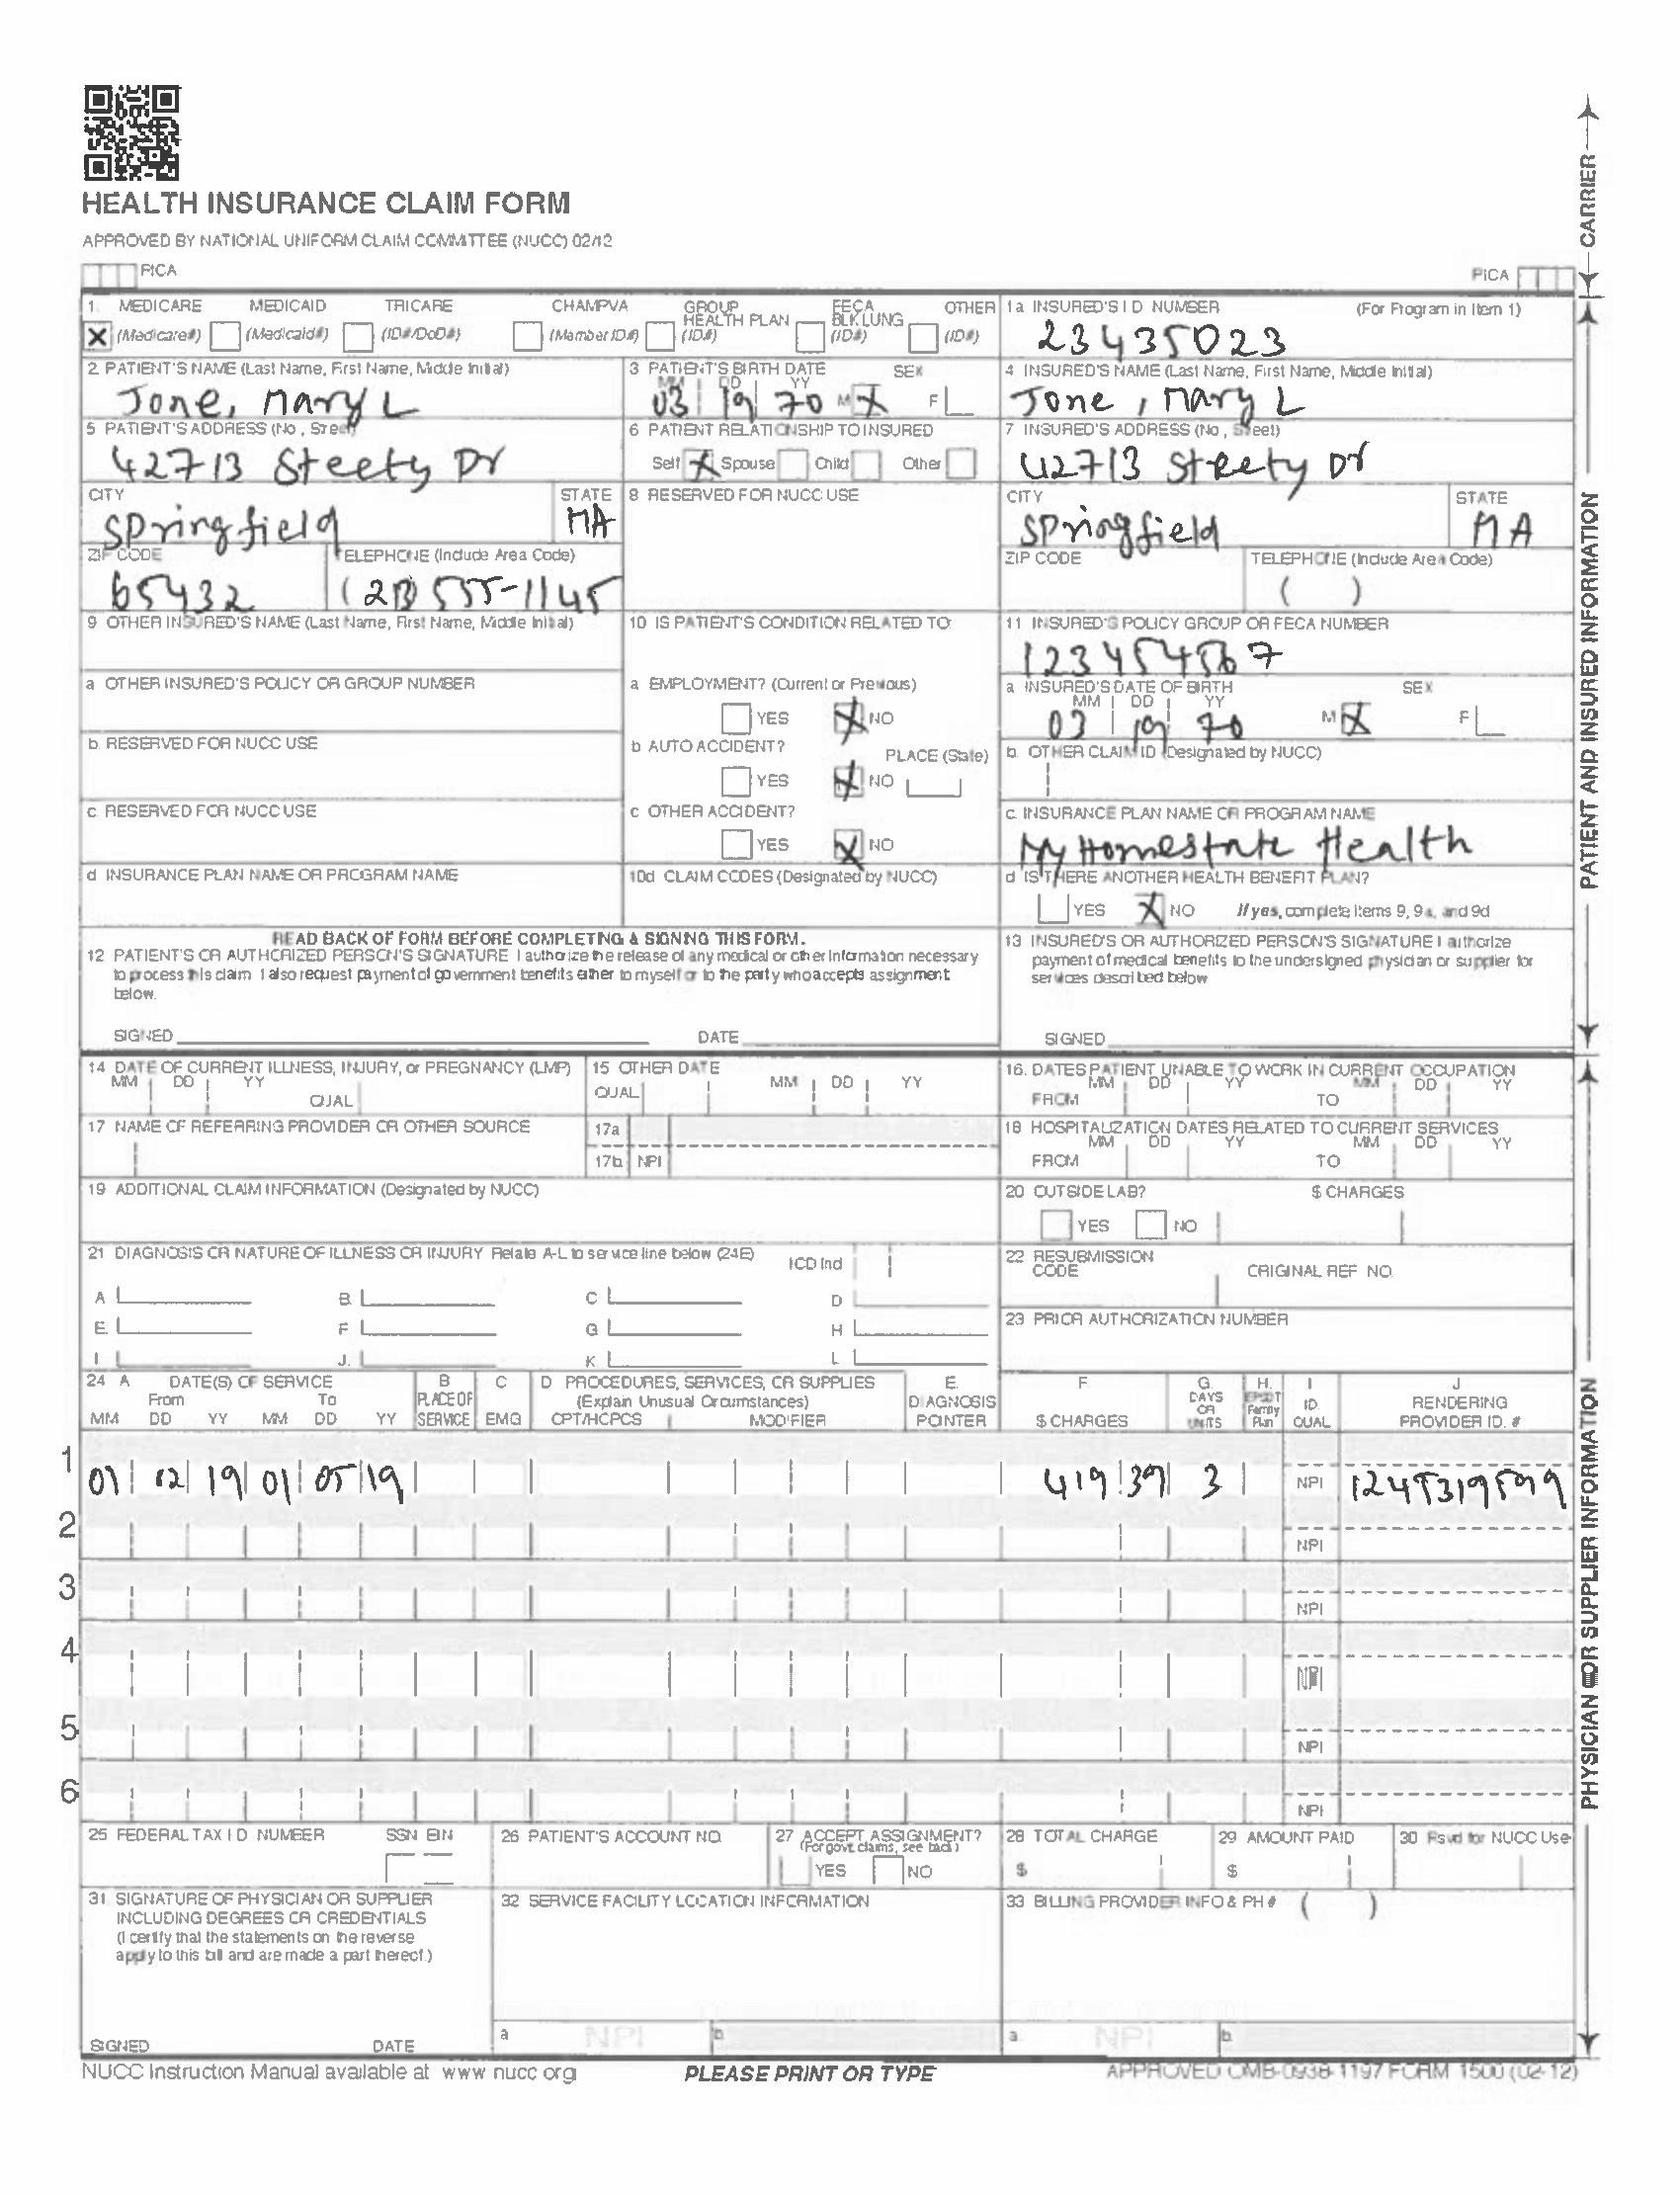 HEALTH INSURANCE CLAIM FORM
APPROVED BY NATIONAL UNIFORM CLAIM COMMITTEE (NUCC) 02/12
PICA
PICA
CARRIER
1. MEDICARE MEDICAID TRICARE CHAMPVA GROUP HEALTH PLAN FECA BLK LUNG OTHER
X (Medicare#) (Medicaid#) (ID#/DoD#) (Member ID#) (ID#) (ID#) (ID#)
1a INSURED'S I D NUMBER (For Program in Item 1)
23435023
2. PATIENT'S NAME (Last Name, First Name, Middle Initial)
Jone, Mary L
3 PATIENT'S BIRTH DATE SEX
MM DD YY
03 19 70 M X F
4 INSURED'S NAME (Last Name, First Name, Middle Initial)
Jone, Mary L
5 PATIENT'S ADDRESS (No, Street)
42713 Steety Dr
6 PATIENT RELATIONSHIP TO INSURED
Self X Spouse Child Other
7 INSURED'S ADDRESS (No, Street)
42713 Streety Dr
CITY STATE
Springfield MA
8 RESERVED FOR NUCC USE
CITY STATE
Springfield MA
ZIP CODE TELEPHONE (Include Area Code)
65432 (213) 555-1145
ZIP CODE TELEPHONE (Include Area Code)
( )
9 OTHER INSURED'S NAME (Last Name, First Name, Middle Initial)
10 IS PATIENT'S CONDITION RELATED TO:
11 INSURED'S POLICY GROUP OR FECA NUMBER
a OTHER INSURED'S POLICY OR GROUP NUMBER
a EMPLOYMENT? (Current or Previous)
YES X NO
a INSURED'S DATE OF BIRTH SEX
MM DD YY
03 19 70 M X F
b. RESERVED FOR NUCC USE
b AUTO ACCIDENT? PLACE (State)
YES X NO
b. OTHER CLAIM ID (Designated by NUCC)
c. RESERVED FOR NUCC USE
c OTHER ACCIDENT?
YES X NO
c. INSURANCE PLAN NAME OR PROGRAM NAME
My Homestate Health
d INSURANCE PLAN NAME OR PROGRAM NAME
10d CLAIM CODES (Designated by NUCC)
d IS THERE ANOTHER HEALTH BENEFIT PLAN?
YES X NO If yes, complete items 9, 9a, and 9d
PATIENT AND INSURED INFORMATION
READ BACK OF FORM BEFORE COMPLETING & SIGNING THIS FORM.
12 PATIENT'S OR AUTHORIZED PERSON'S SIGNATURE I authorize the release of any medical or other information necessary
to process this claim I also request payment of government benefits either to myself or to the party who accepts assignment
below.
SIGNED DATE
13 INSURED'S OR AUTHORIZED PERSON'S SIGNATURE I authorize
payment of medical benefits to the undersigned physician or supplier for
services described below
SIGNED
14 DATE OF CURRENT ILLNESS, INJURY, or PREGNANCY (LMP)
MM DD YY
QUAL
15 OTHER DATE
QUAL MM DD YY
16. DATES PATIENT UNABLE TO WORK IN CURRENT OCCUPATION
MM DD YY MM DD YY
FROM TO
17 NAME OF REFERRING PROVIDER OR OTHER SOURCE
17a
17b NPI
18 HOSPITALIZATION DATES RELATED TO CURRENT SERVICES
MM DD YY MM DD YY
FROM TO
19 ADDITIONAL CLAIM INFORMATION (Designated by NUCC)
20 OUTSIDE LAB? $ CHARGES
YES NO
21 DIAGNOSIS OR NATURE OF ILLNESS OR INJURY Relate A-L to service line below (24E)
ICD Ind
A B. C D
E. F G H
I J. K L
22 RESUBMISSION
CODE ORIGINAL REF NO
23 PRIOR AUTHORIZATION NUMBER
24 A DATE(S) OF SERVICE B C D PROCEDURES, SERVICES, OR SUPPLIES E. F G. H. I J
From To PLACE OF (Explain Unusual Circumstances) DIAGNOSIS DAYS OR UNITS EPSDT Family Plan ID. RENDERING
MM DD YY MM DD YY SERVICE EMG CPT/HCPCS MODIFIER POINTER $ CHARGES QUAL PROVIDER ID. #
1
01 02 19 01 05 19 419 39 3 NPI
2 NPI
3 NPI
4 NPI
5 NPI
6 NPI
25 FEDERAL TAX I D NUMBER SSN EIN
26 PATIENT'S ACCOUNT NO.
27 ACCEPT ASSIGNMENT?
(For govt. claims, see back)
YES NO
28 TOTAL CHARGE
$
29 AMOUNT PAID
$
30 Rsvd for NUCC Use
31 SIGNATURE OF PHYSICIAN OR SUPPLIER
INCLUDING DEGREES OR CREDENTIALS
(I certify that the statements on the reverse
apply to this bill and are made a part thereof.)
SIGNED DATE
32 SERVICE FACILITY LOCATION INFORMATION
a NPI b.
33 BILLING PROVIDER INFO & PH # ( )
a. NPI b.
PHYSICIAN OR SUPPLIER INFORMATION
NUCC Instruction Manual available at www nucc org
PLEASE PRINT OR TYPE
APPROVED OMB-0938-1197 FORM 1500 (02-12)